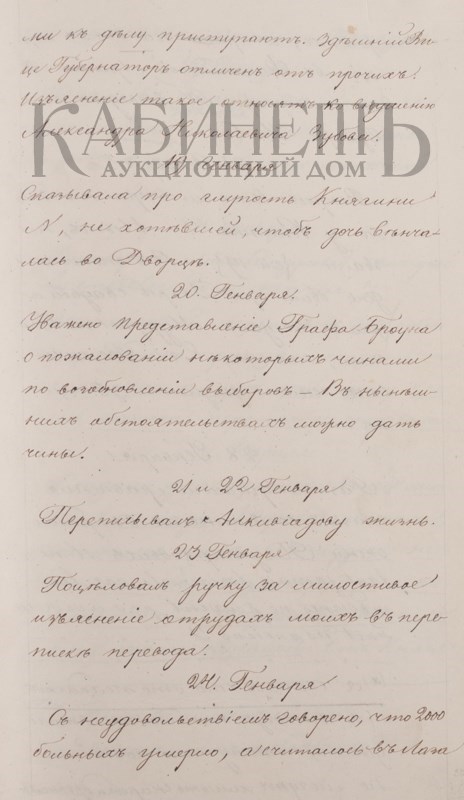 ми къ дѣлу приступаютъ. Здѣшній Ви-
це Губернаторъ отличенъ отъ прочихъ!
Изъясненіе такое относятъ къ
Александра Николаевича Зубова.
КАБИНЕТЪ
АУКЦИОННЫЙ ДОМ
19 Генваря
Сказывала про глупость Княгини
N, не хотѣвшей, чтобъ дочь вѣнча-
лась во Дворцѣ.
20. Генваря.
Уважено представленіе Графа Броуна
о пожалованіи нѣкоторыхъ чинами
по возобновленіи выборовъ — Въ нынѣш-
нихъ обстоятельствахъ можно дать
чины.
21 и 22 Генваря
Переписывалъ Алкивіадову жизнь.
23 Генваря
Поцѣловалъ ручку за милостивое
изъясненіе о трудахъ моихъ въ пере-
пискѣ перевода.
24. Генваря
Съ неудовольствіемъ говорено, что 2000
больныхъ умерло, а считалось въ Лаза